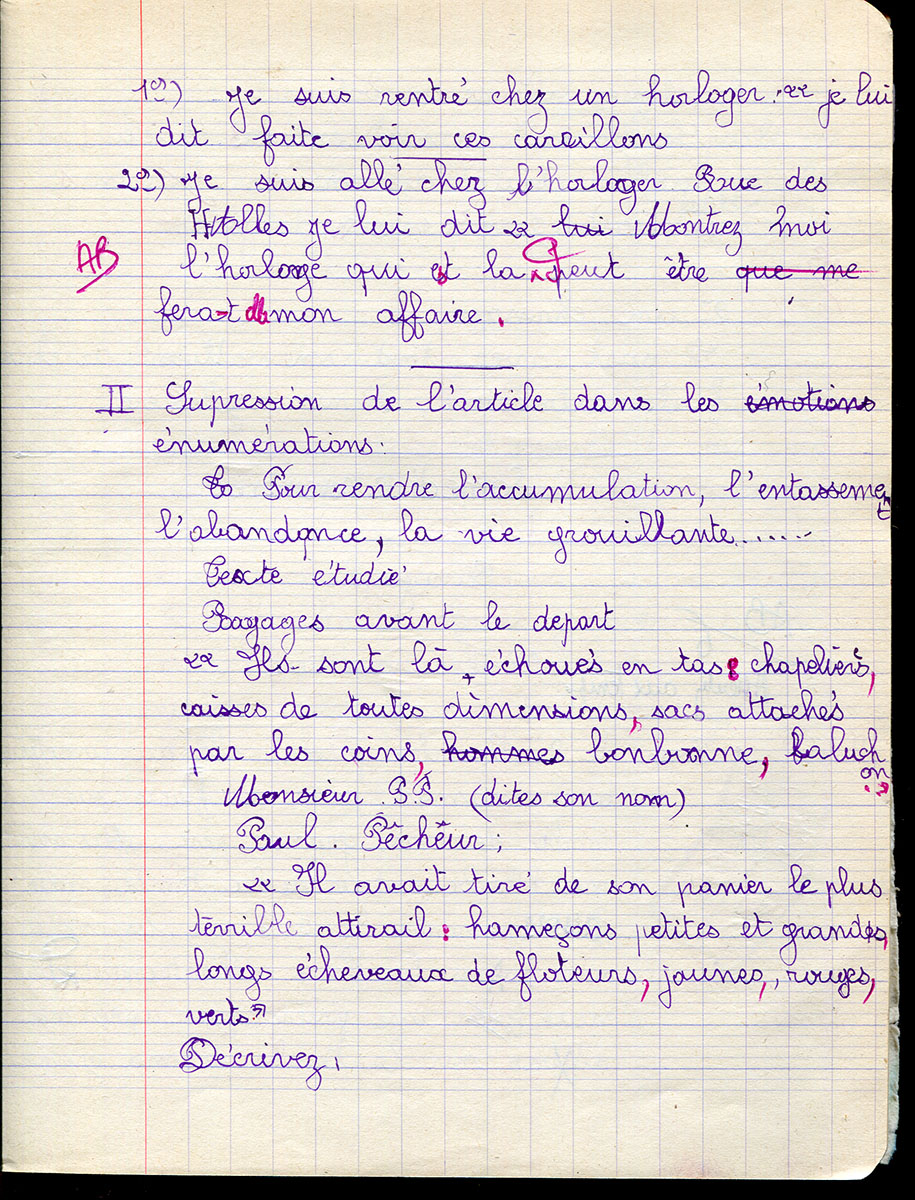 1º) Je suis rentré chez un horloger. « je lui
dit faite voir ces careillons
2º) Je suis allé chez l'horloger Rue des
Halles je lui dit « lui Montrez moi
AB
l'horloge qui est la peut être que me
fera-t mon affaire.
II Supression de l'article dans les émotions
énumérations.
Pour rendre l'accumulation, l'entassement
l'abandance, la vie grouillante......
Texte étudié
Bagages avant le depart
« Ils sont là, échoués en tas : chapeliers,
caisses de toutes dimensions, sacs attachés
par les coins, hommes bonbonne, baluch
on.»
Monsieur P.P. (dites son nom)
Paul. Pêchêur ;
« Il avait tiré de son panier le plus
terrible attirail : hameçons petites et grandes,
longs écheveaux de floteurs, jaunes, rouges,
verts »
Décrivez.